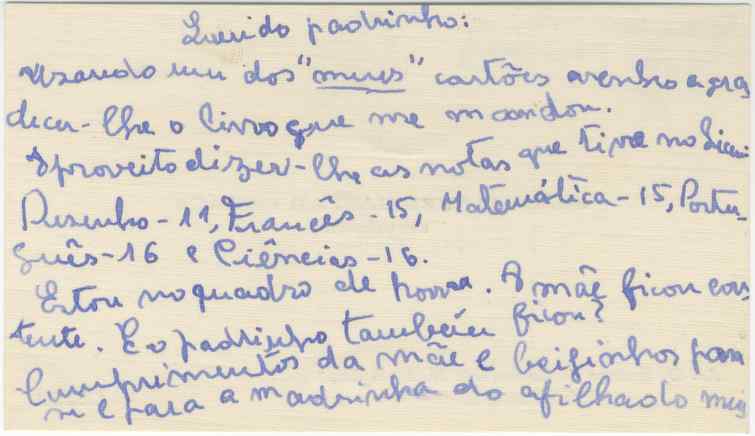 Querido padrinho:
Usando um dos "meus" cartões venho agra
decer-lhe o livro que me mandou.
Aproveito dizer-lhe as notas que tive no Liceu
Desenho-11, Francês-15, Matemática-15, Portu-
guês-16 e Ciências-16.
Estou no quadro de honra. A mãe ficou con
tente. E o padrinho também ficou?
Cumprimentos da mãe e beijinhos para
si e para a madrinha do afilhado mig